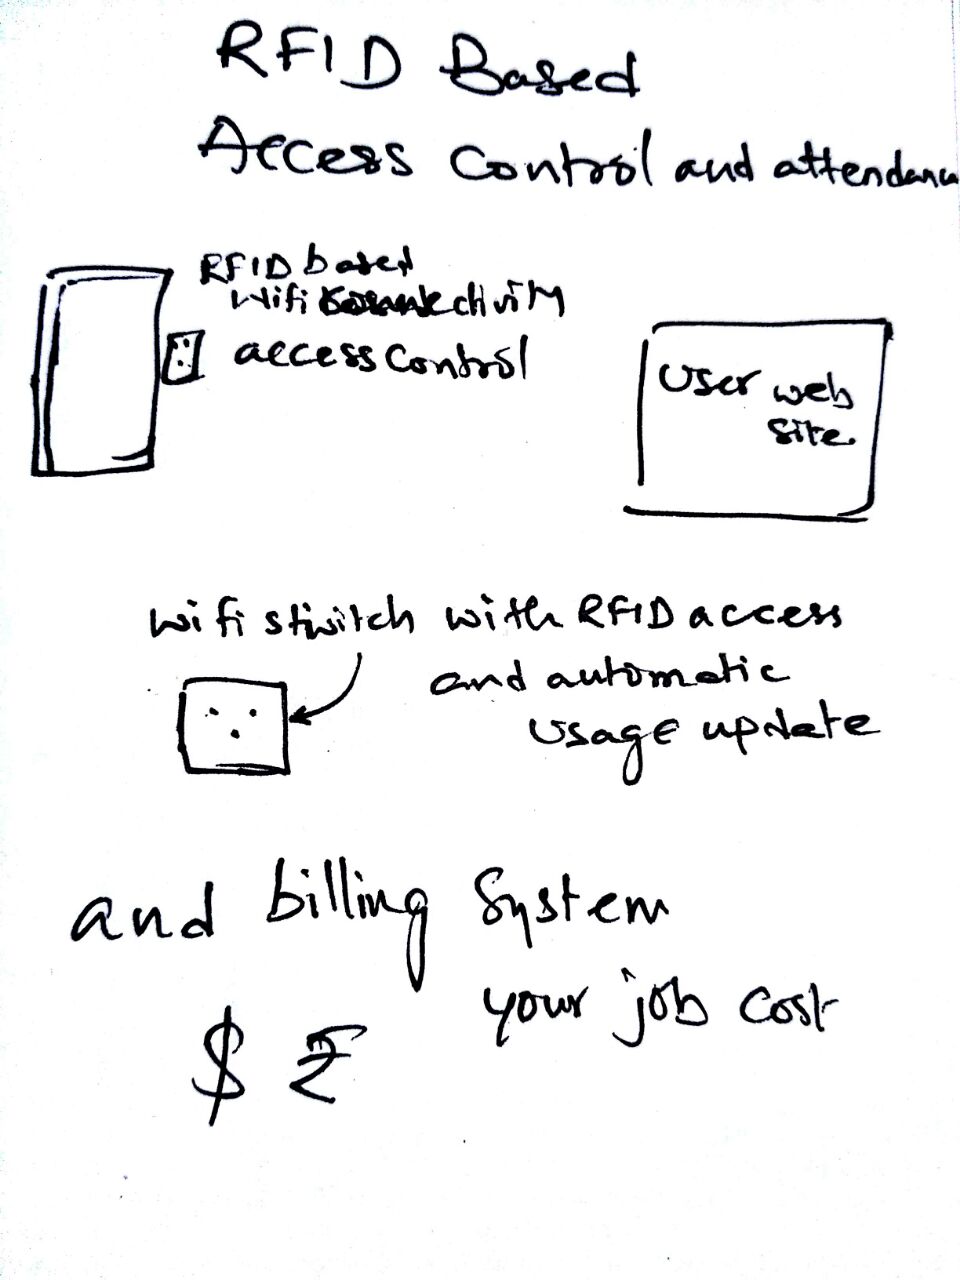 RFID Based
Access Control and attendance
RFID based
Wifi connectivity
access control
User web
site.
wifi switch with RFID access
and automatic
usage update
and billing System
your job cost
$ ₹